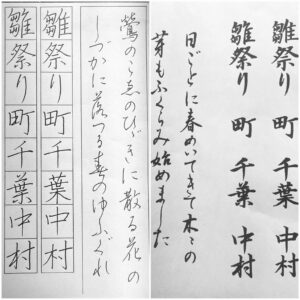 雛祭り 町 千葉 中村
雛祭り 町 千葉 中村
日ごとに春めいてきて木々の
芽もふくらみ始めました
鶯のこゑのひゞきに散る花の
しづかに落つる春のゆふぐれ
雛祭り町千葉中村
雛祭り町千葉中村